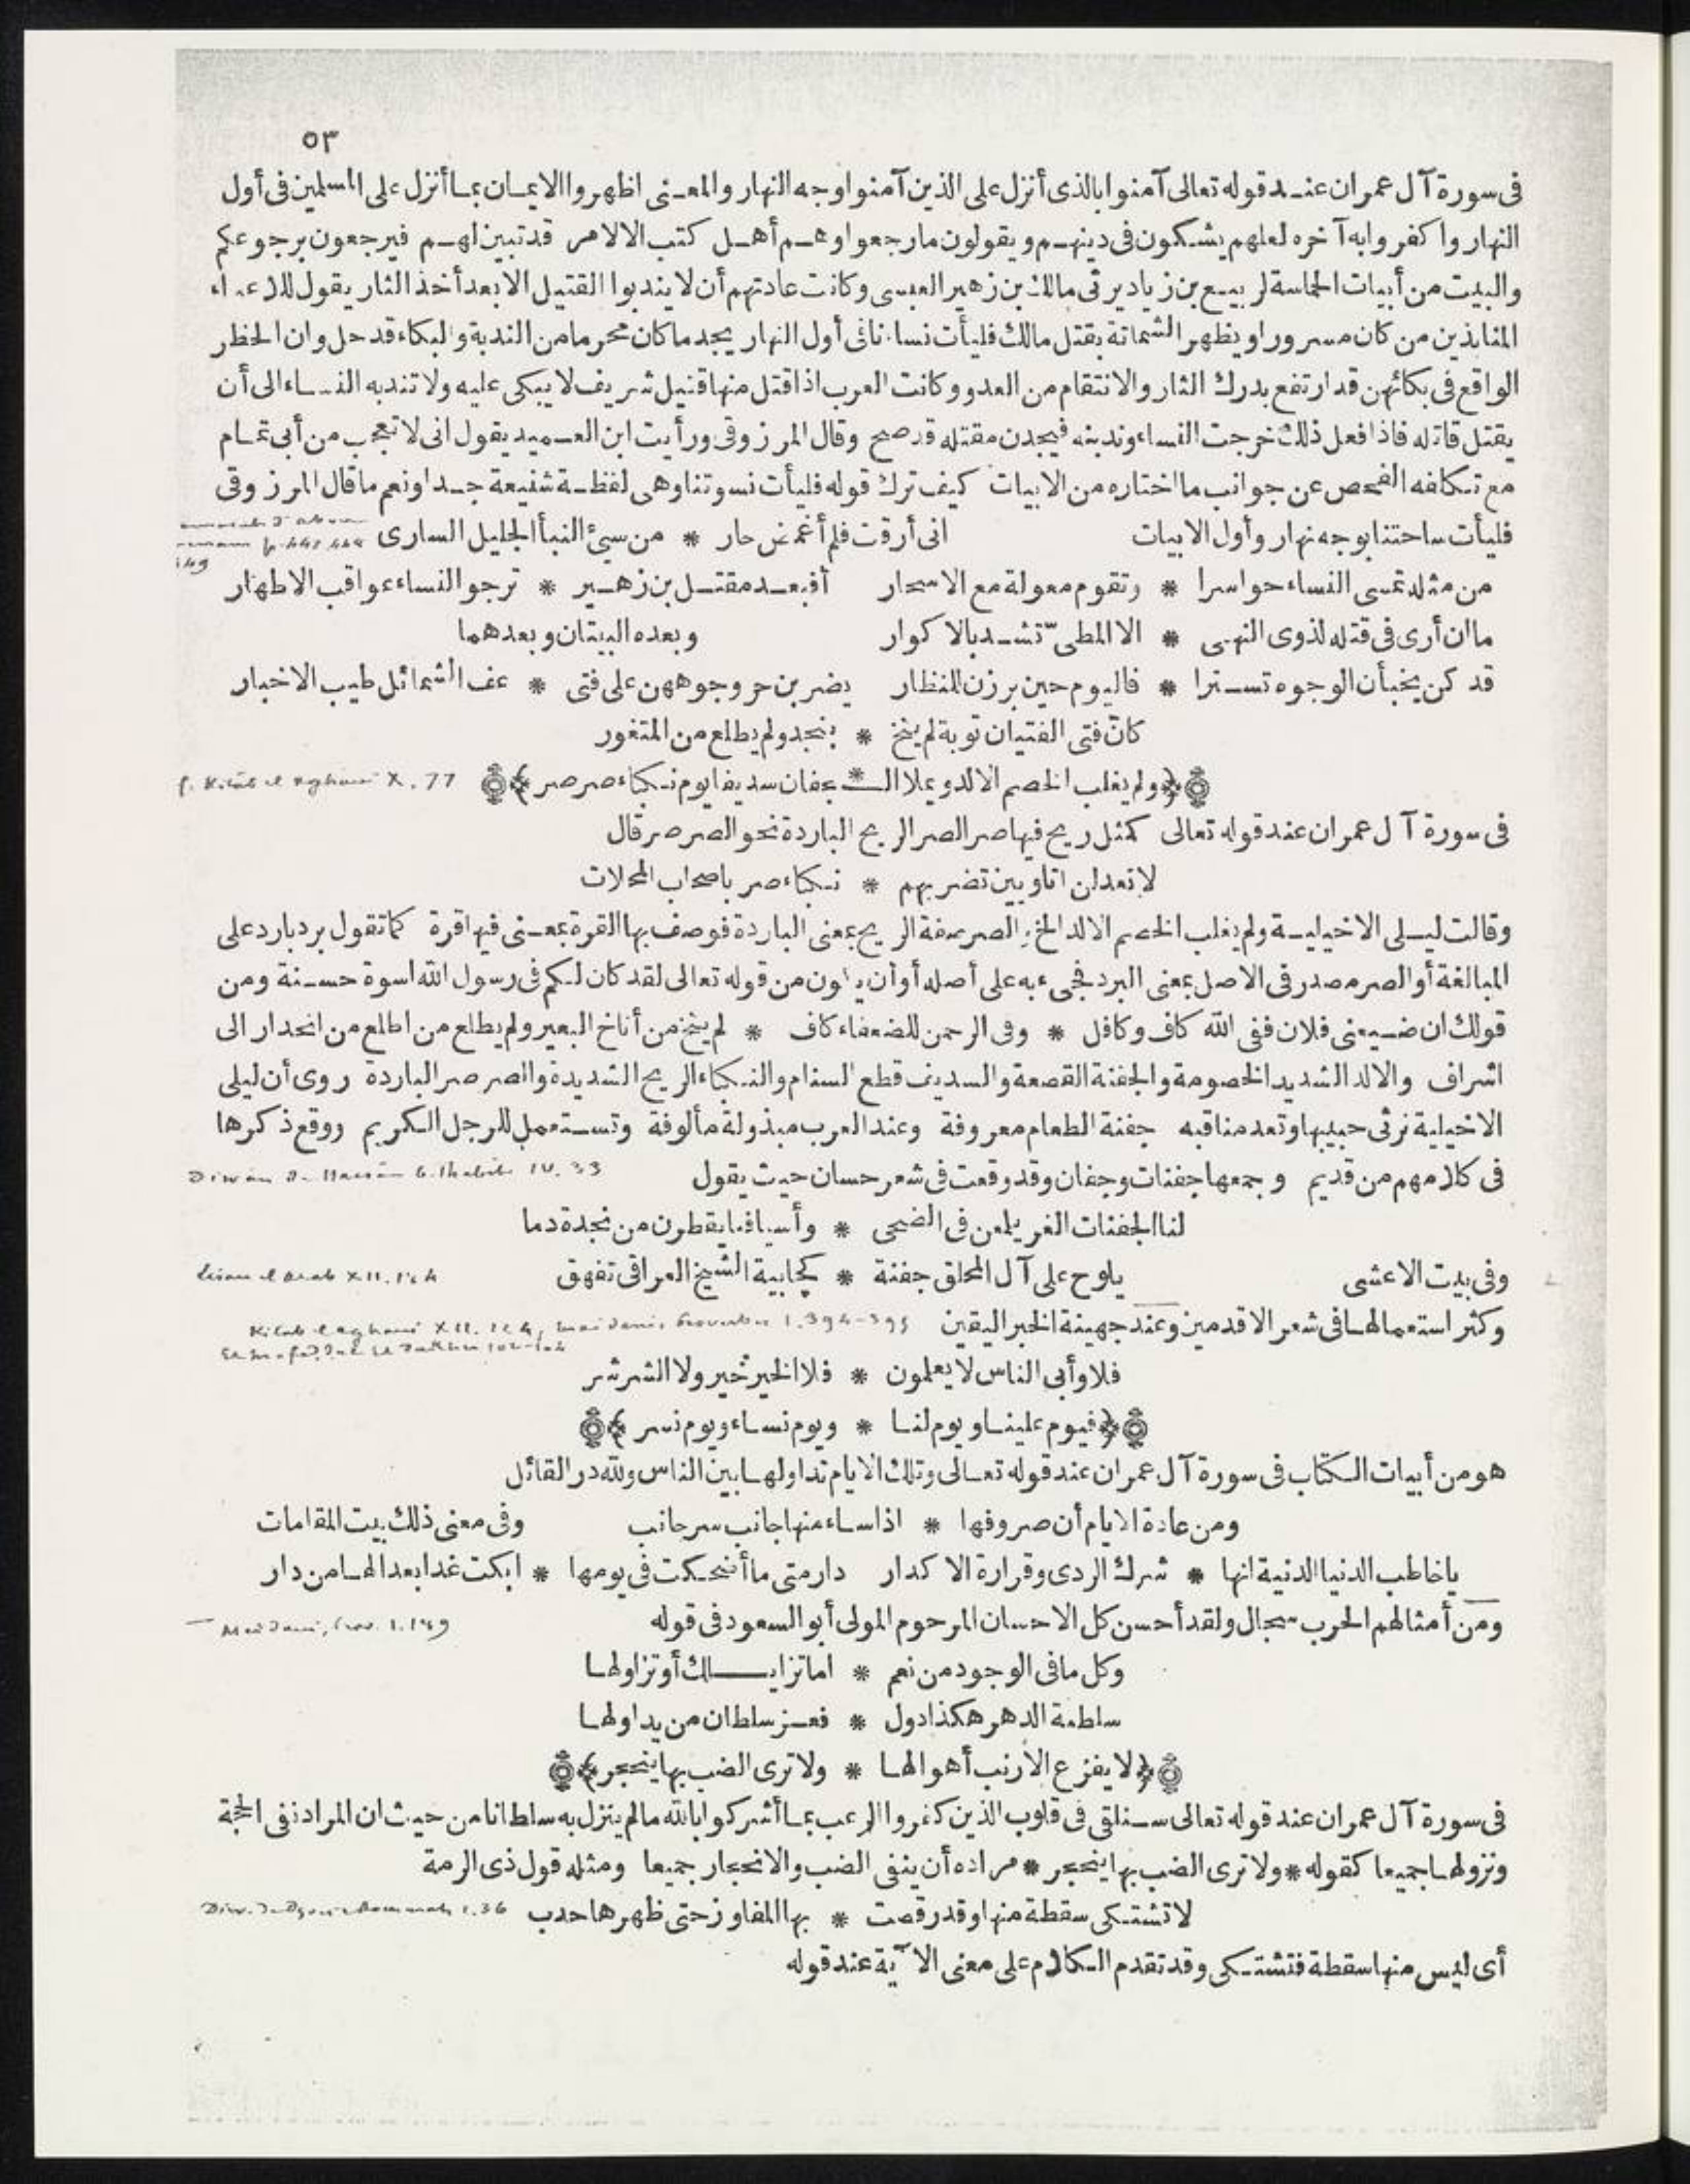 ٥٣
فى سورة آل عمران عند قوله تعالى آمنوا بالذى أنزل على الذين آمنوا وجه النهار والمعنى اظهروا الايمان بما أنزل على المسلمين فى أول
النهار واكفروا به آخره لعلهم يشكون فى دينهم ويقولون ما رجعوا وهم أهل كتب الا لامر قد تبين لهم فيرجعون برجوعكم
والبيت من أبيات الحماسة لربيع بن زياد يرثى مالك بن زهير العبسى وكانت عادتهم أن لا يندبوا القتيل الا بعد أخذ الثار يقول للاعداء
المنابذين من كان مسرورا ويظهر الشماتة بقتل مالك فليأت نساءنا فى أول النهار يجد ما كان محرما من الندبة والبكاء قد حل وان الحظر
الواقع فى بكائهن قد ارتفع بدرك الثار والانتقام من العدو وكانت العرب اذا قتل منها قتيل شريف لا يبكى عليه ولا تندبه النساء الى أن
يقتل قاتله فاذا فعل ذلك خرجت النساء وندبنه فيجدن مقتله قد صح وقال المرزوقى ورأيت ابن العميد يقول انى لا تعجب من أبى تمام
مع تكلفه الفحص عن جوانب ما اختاره من الابيات كيف ترك قوله فليأت نسوتنا وهى لفظة شنيعة جدا ونعم ما قال المرزوقى
فليأت ساحتنا بوجه نهار وأول الابيات انى أرقت فلم أغمض حار * من سيئ النبأ الجليل السارى
من مثله تمسى النساء حواسرا * وتقوم معولة مع الاسحار أفبعد مقتل بن زهير * ترجو النساء عواقب الاطهار
ما ان أرى فى قتله لذوى النهى * الا المطى تشد بالاكوار وبعده البيتان وبعدهما
قد كن يخبأن الوجوه تسترا * فاليوم حين برزن للنظار يضربن حر وجوههن على فتى * عف الشمائل طيب الاخبار
كان فتى الفتيان توبة لم ينخ * بنجد ولم يطلع من المتغور
﴿ولم يغلب الخصم الالد ويملا الـ * ـجفان سديفا يوم نكباء صرصر﴾ Kitâb el Aghâni X. 77
فى سورة آل عمران عند قوله تعالى كمثل ريح فيها صر الصر الريح الباردة نحو الصرصر قال
لا تعدلن اتاويين تضربهم * نكباء صر باصحاب المحلات
وقالت ليلى الاخيلية ولم يغلب الخصم الالد الخ الصر صفة الريح بمعنى الباردة فوصف بها القرة بمعنى فيها قرة كما تقول برد بارد على
المبالغة أو الصر مصدر فى الاصل بمعنى البرد فجىء به على أصله أو أن يكون من قوله تعالى لقد كان لكم فى رسول الله اسوة حسنة ومن
قولك ان ضيعنى فلان ففى الله كاف وكافل * وفى الرحمن للضعفاء كاف * لم ينخ من أناخ البعير ولم يطلع من اطلع من انحدار الى
اشراف والالد الشديد الخصومة والجفنة القصعة والسديف قطع السنام والنكباء الريح الشديدة والصرصر الباردة روى أن ليلى
الاخيلية ترثى حبيبها وتعد مناقبه جفنة الطعام معروفة وعند العرب مبذولة مألوفة وتستعمل للرجل الكريم ووقع ذكرها
فى كلامهم من قديم وجمعها جفنات وجفان وقد وقعت فى شعر حسان حيث يقول Thabit IV. 33
لنا الجفنات الغر يلمعن فى الضحى * وأسيافنا يقطرن من نجدة دما
وفى بيت الاعشى يلوح على آل المحلق جفنة * كجابية الشيخ العراقى تفهق
وكثر استعمالها فى شعر الاقدمين وعند جهينة الخبر اليقين
فلا وأبى الناس لا يعلمون * فلا الخير خير ولا الشر شر
﴿فيوم علينا ويوم لنا * ويوم نساء ويوم نسر﴾
هو من أبيات الكتاب فى سورة آل عمران عند قوله تعالى وتلك الايام نداولها بين الناس ولله در القائل
ومن عادة الايام أن صروفها * اذا ساء منها جانب سر جانب وفى معنى ذلك بيت المقامات
يا خاطب الدنيا الدنية انها * شرك الردى وقرارة الاكدار دار متى ما أضحكت فى يومها * ابكت غدا بعدا لها من دار
ومن أمثالهم الحرب سجال ولقد أحسن كل الاحسان المرحوم المولى أبو السعود فى قوله
وكل ما فى الوجود من نعم * اما تزايلك أو تزاولها
سلطنة الدهر هكذا دول * فعز سلطان من يداولها
﴿لا يفزع الارنب أهوالها * ولا ترى الضب بها ينجحر﴾
فى سورة آل عمران عند قوله تعالى سنلقى فى قلوب الذين كفروا الرعب بما أشركوا بالله ما لم ينزل به سلطانا من حيث ان المراد نفى الحجة
ونزولها جميعا كقوله * ولا ترى الضب بها ينجحر * مراده أن ينفى الضب والانجحار جميعا ومثله قول ذى الرمة
لا تشتكى سقطة منها وقد رقصت * بها المفاوز حتى ظهرها حدب
أى ليس منها سقطة فتشتكى وقد تقدم الكلام على معنى الآية عند قوله